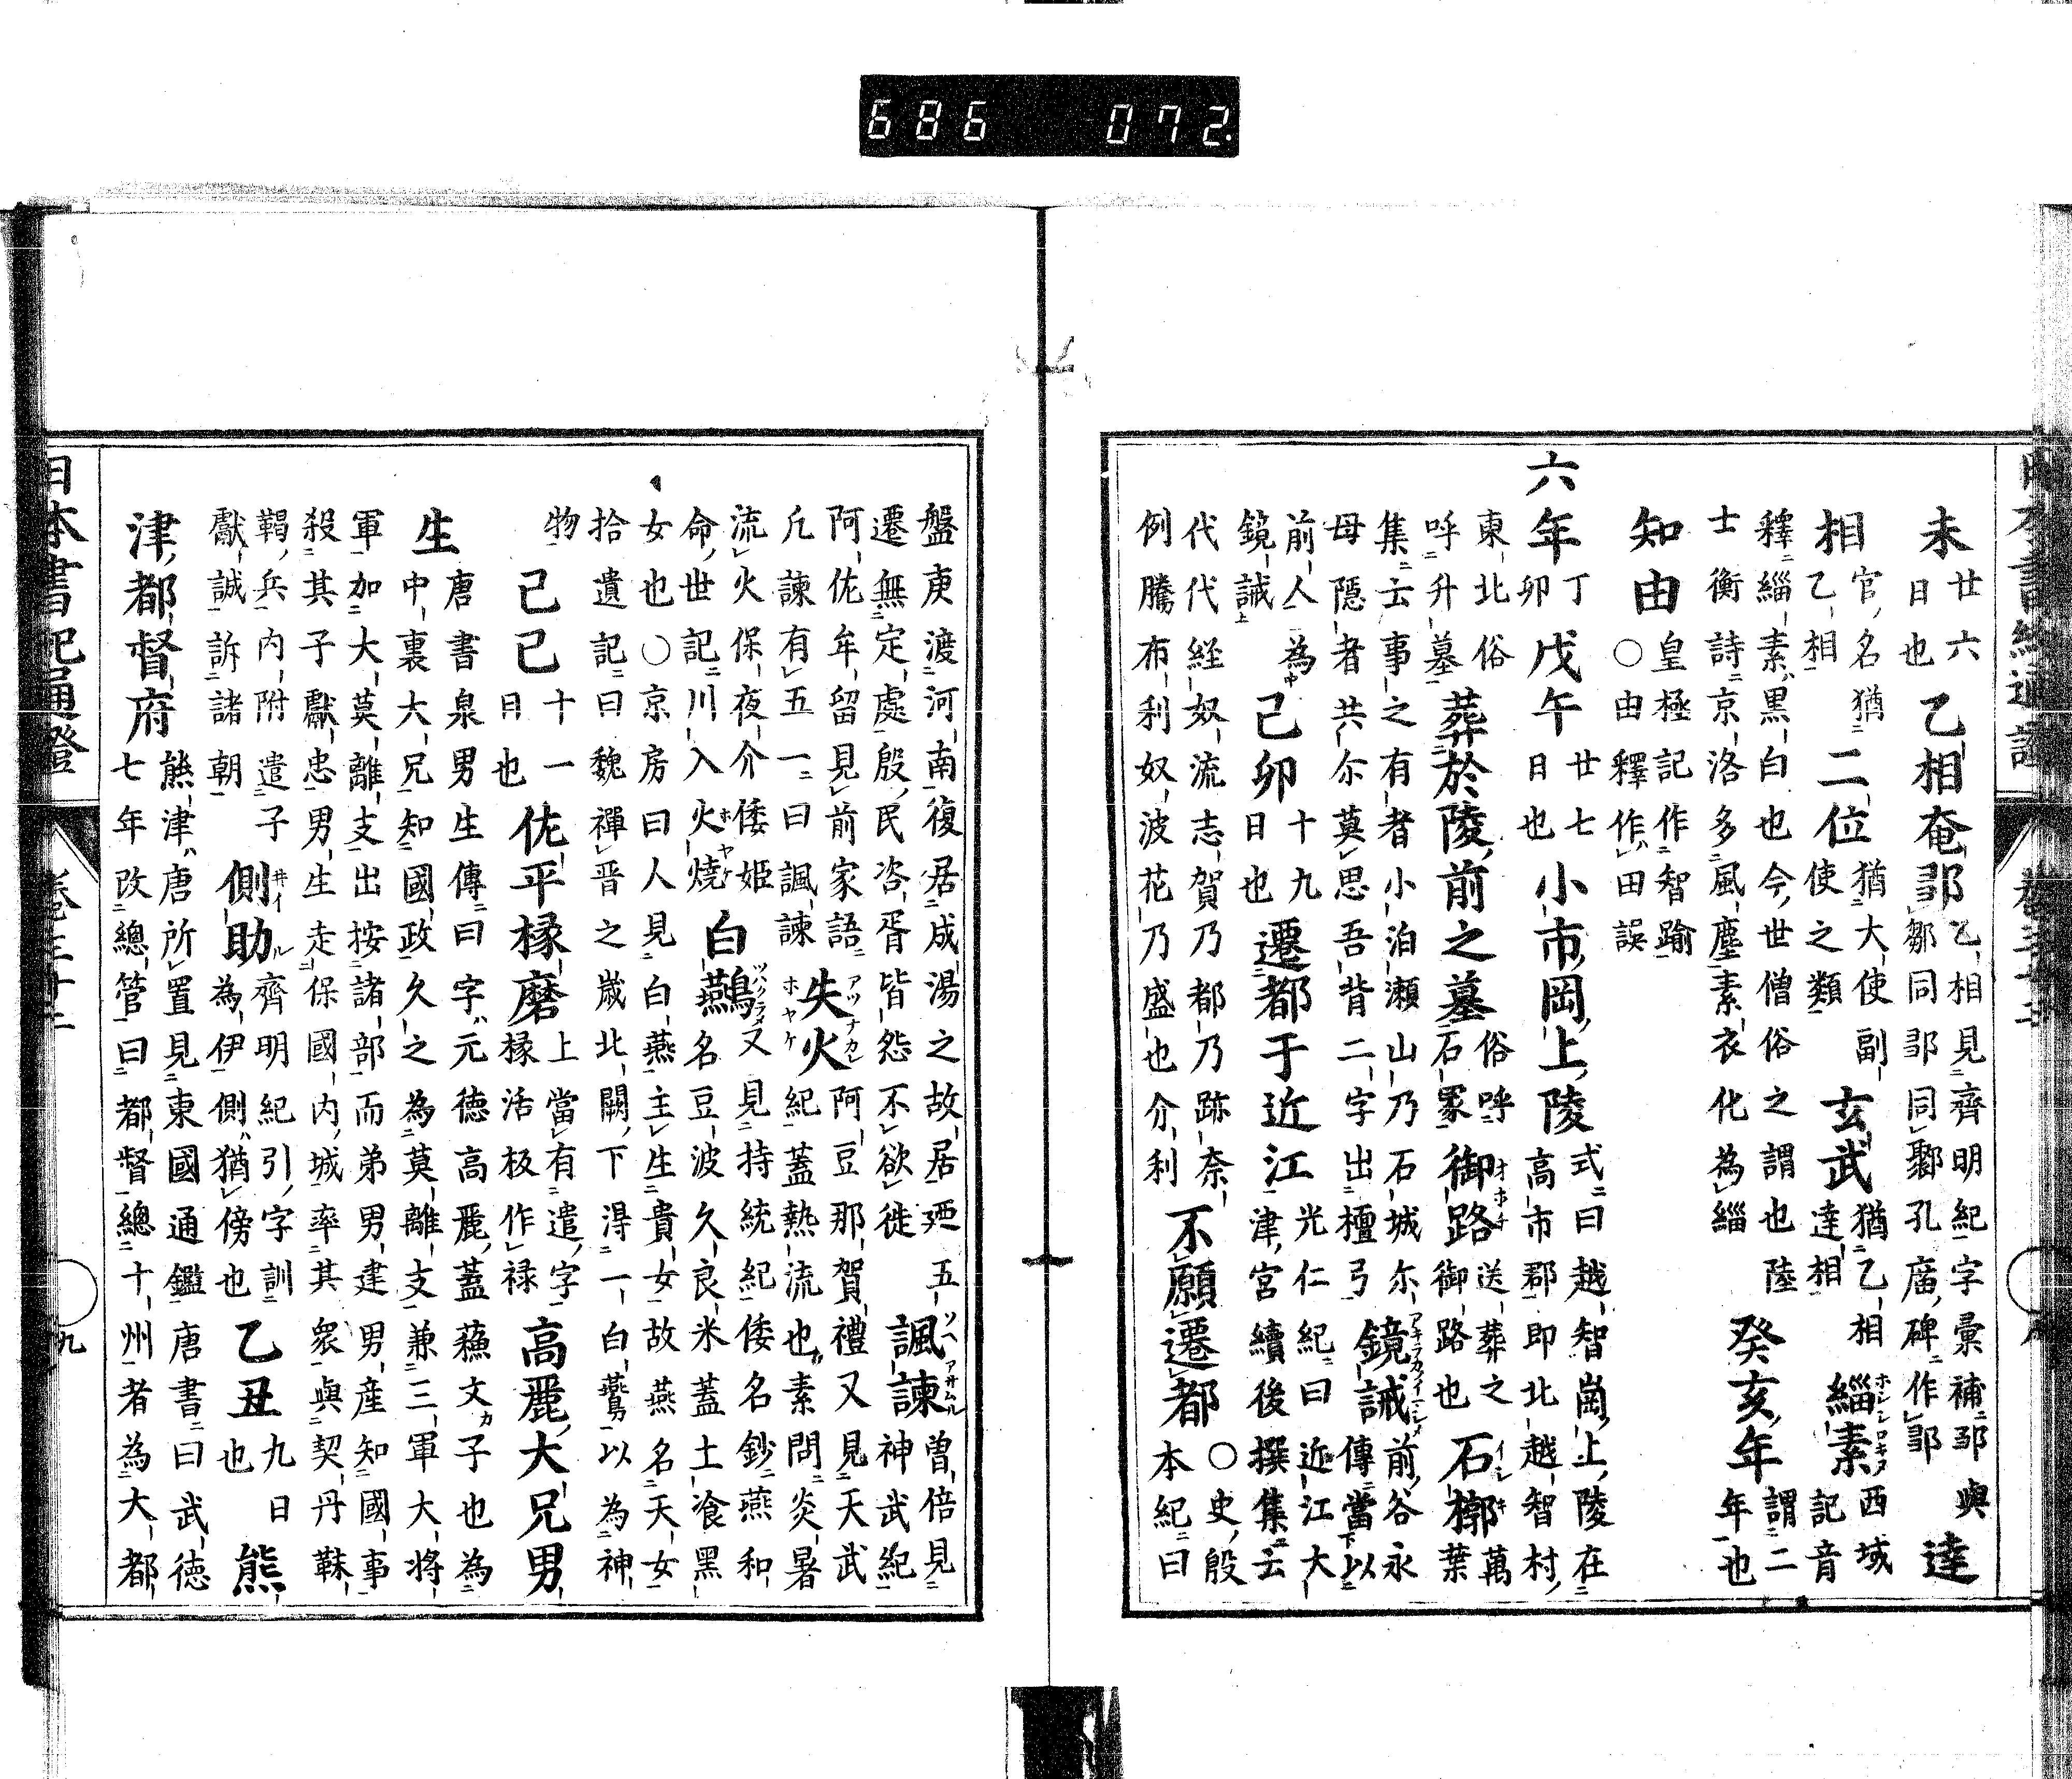 686 072.
未 廿六日也 乙相奄鄒 乙相見齊明紀字彙補鄒與鄒同鄒同鄹孔庿碑作鄒 達
相 官名猶乙相 二位 猶大使副使之類 玄武 猶乙相達相 緇素 西域記音
釋緇素黒白也今世僧俗之謂也陸士衡詩京洛多風塵素衣化為緇 癸亥年 謂二年也
知由 皇極記作智踰○由釋作田誤
六年 丁卯 戊午 廿七日也 小市岡上陵 式曰越智崗上陵在高市郡即北越智村
東北俗呼升墓 葬於陵前之墓 俗呼石冢 御路 送葬之御路也 石槨 萬葉
集云事之有者小泊瀬山乃石城尓母隱者共尓莫思吾背二字出檀弓 鏡誡 前谷永傳當以
前人為鏡誡 己卯 十九日也 遷都于近江 光仁紀曰近江大津宮續後撰集云
代代経奴流志賀乃都乃跡奈例騰布利奴波花乃盛也介利 不願遷都 ○史殷本紀曰
盤庚渡河南復居成湯之故居廼五遷無定處殷民咨胥皆怨不欲徙 諷諫 曽倍見神武紀
阿佐牟留見前家語凢諫有五一曰諷諫 失火 阿豆那賀禮又見天武紀蓋熱流也素問炎暑
流火保夜介倭姫命世記川入火燒 白鷰 又見持統紀倭名鈔燕和名豆波久良米蓋土飡黒
女也○京房曰人見白燕主生貴女故燕名天女拾遺記曰魏禪晋之歲北闕下得一白鷰以為神
物 己巳 十一日也 佐平椽磨 上當有遣字椽活板作禄 高麗大兄男
生 唐書泉男生傳曰字元徳高麗蓋蘓文子也為中裏大兄知國政久之為莫離支兼三軍大將
軍加大莫離支出按諸部而弟男建男産知國事殺其子獻忠男生走保國内城率其衆與契丹靺
鞨兵内附遣子獻誠訴諸朝 側助 齊明紀引字訓為伊側猶傍也 乙丑 九日也 熊
津都督府 熊津唐所置見東國通鑑唐書曰武徳七年改總管曰都督總十州者為大都
日本書紀通證
九